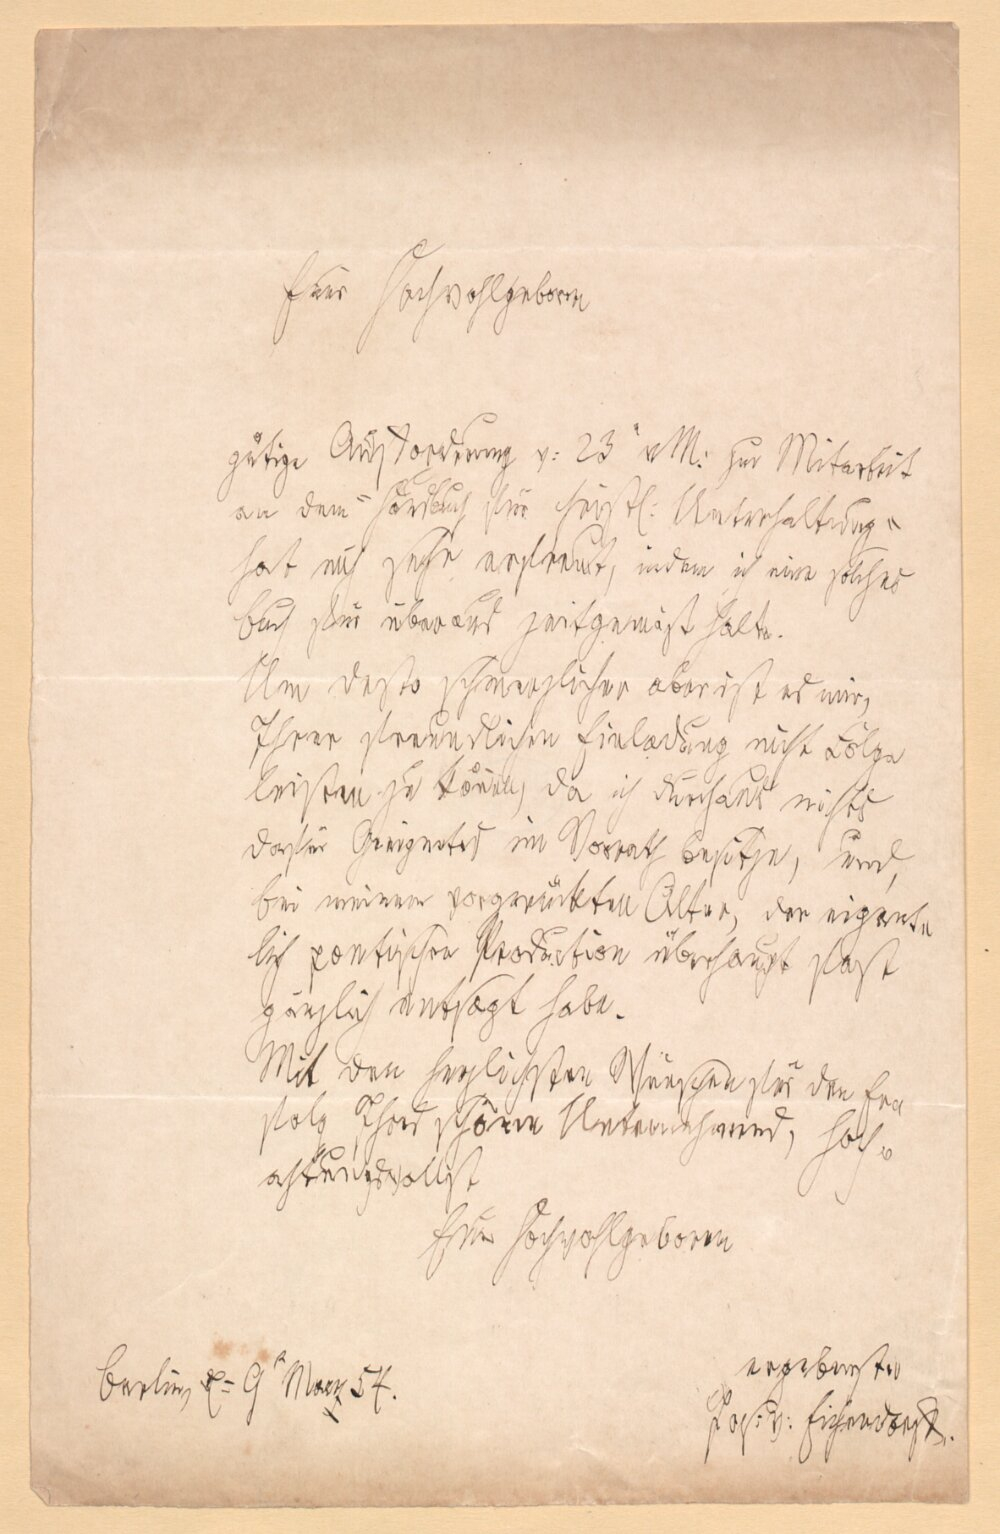 Euer Hochwohlgeboren
gütige Aufforderung v: 23t v M: zur Mitarbeit
an dem "Hausbuch für christl: Unterhaltung"
hat mich sehr erfreut, indem ich eine solches
Buch für überaus zeitgemäß halte.
Um desto schmerzlicher aber ist es mir,
Ihrer freundlichen Einladung nicht Folge
leisten zu können, da ich durchaus nichts
dafür Geeignetes im Vorrath besitze, und,
bei meinem vorgerückten Alter, der eigent=
lich poetischen Production überhaupt fast
gänzlich entsagt habe.
Mit den herzlichsten Wünschen für den Er=
folg Ihres schönen Unternehmens, hoch=
achtungsvollst
Euer Hochwohlgeboren
ergebenster
Berlin, d= 9t März 54.
Jos: v: Eichendorff.